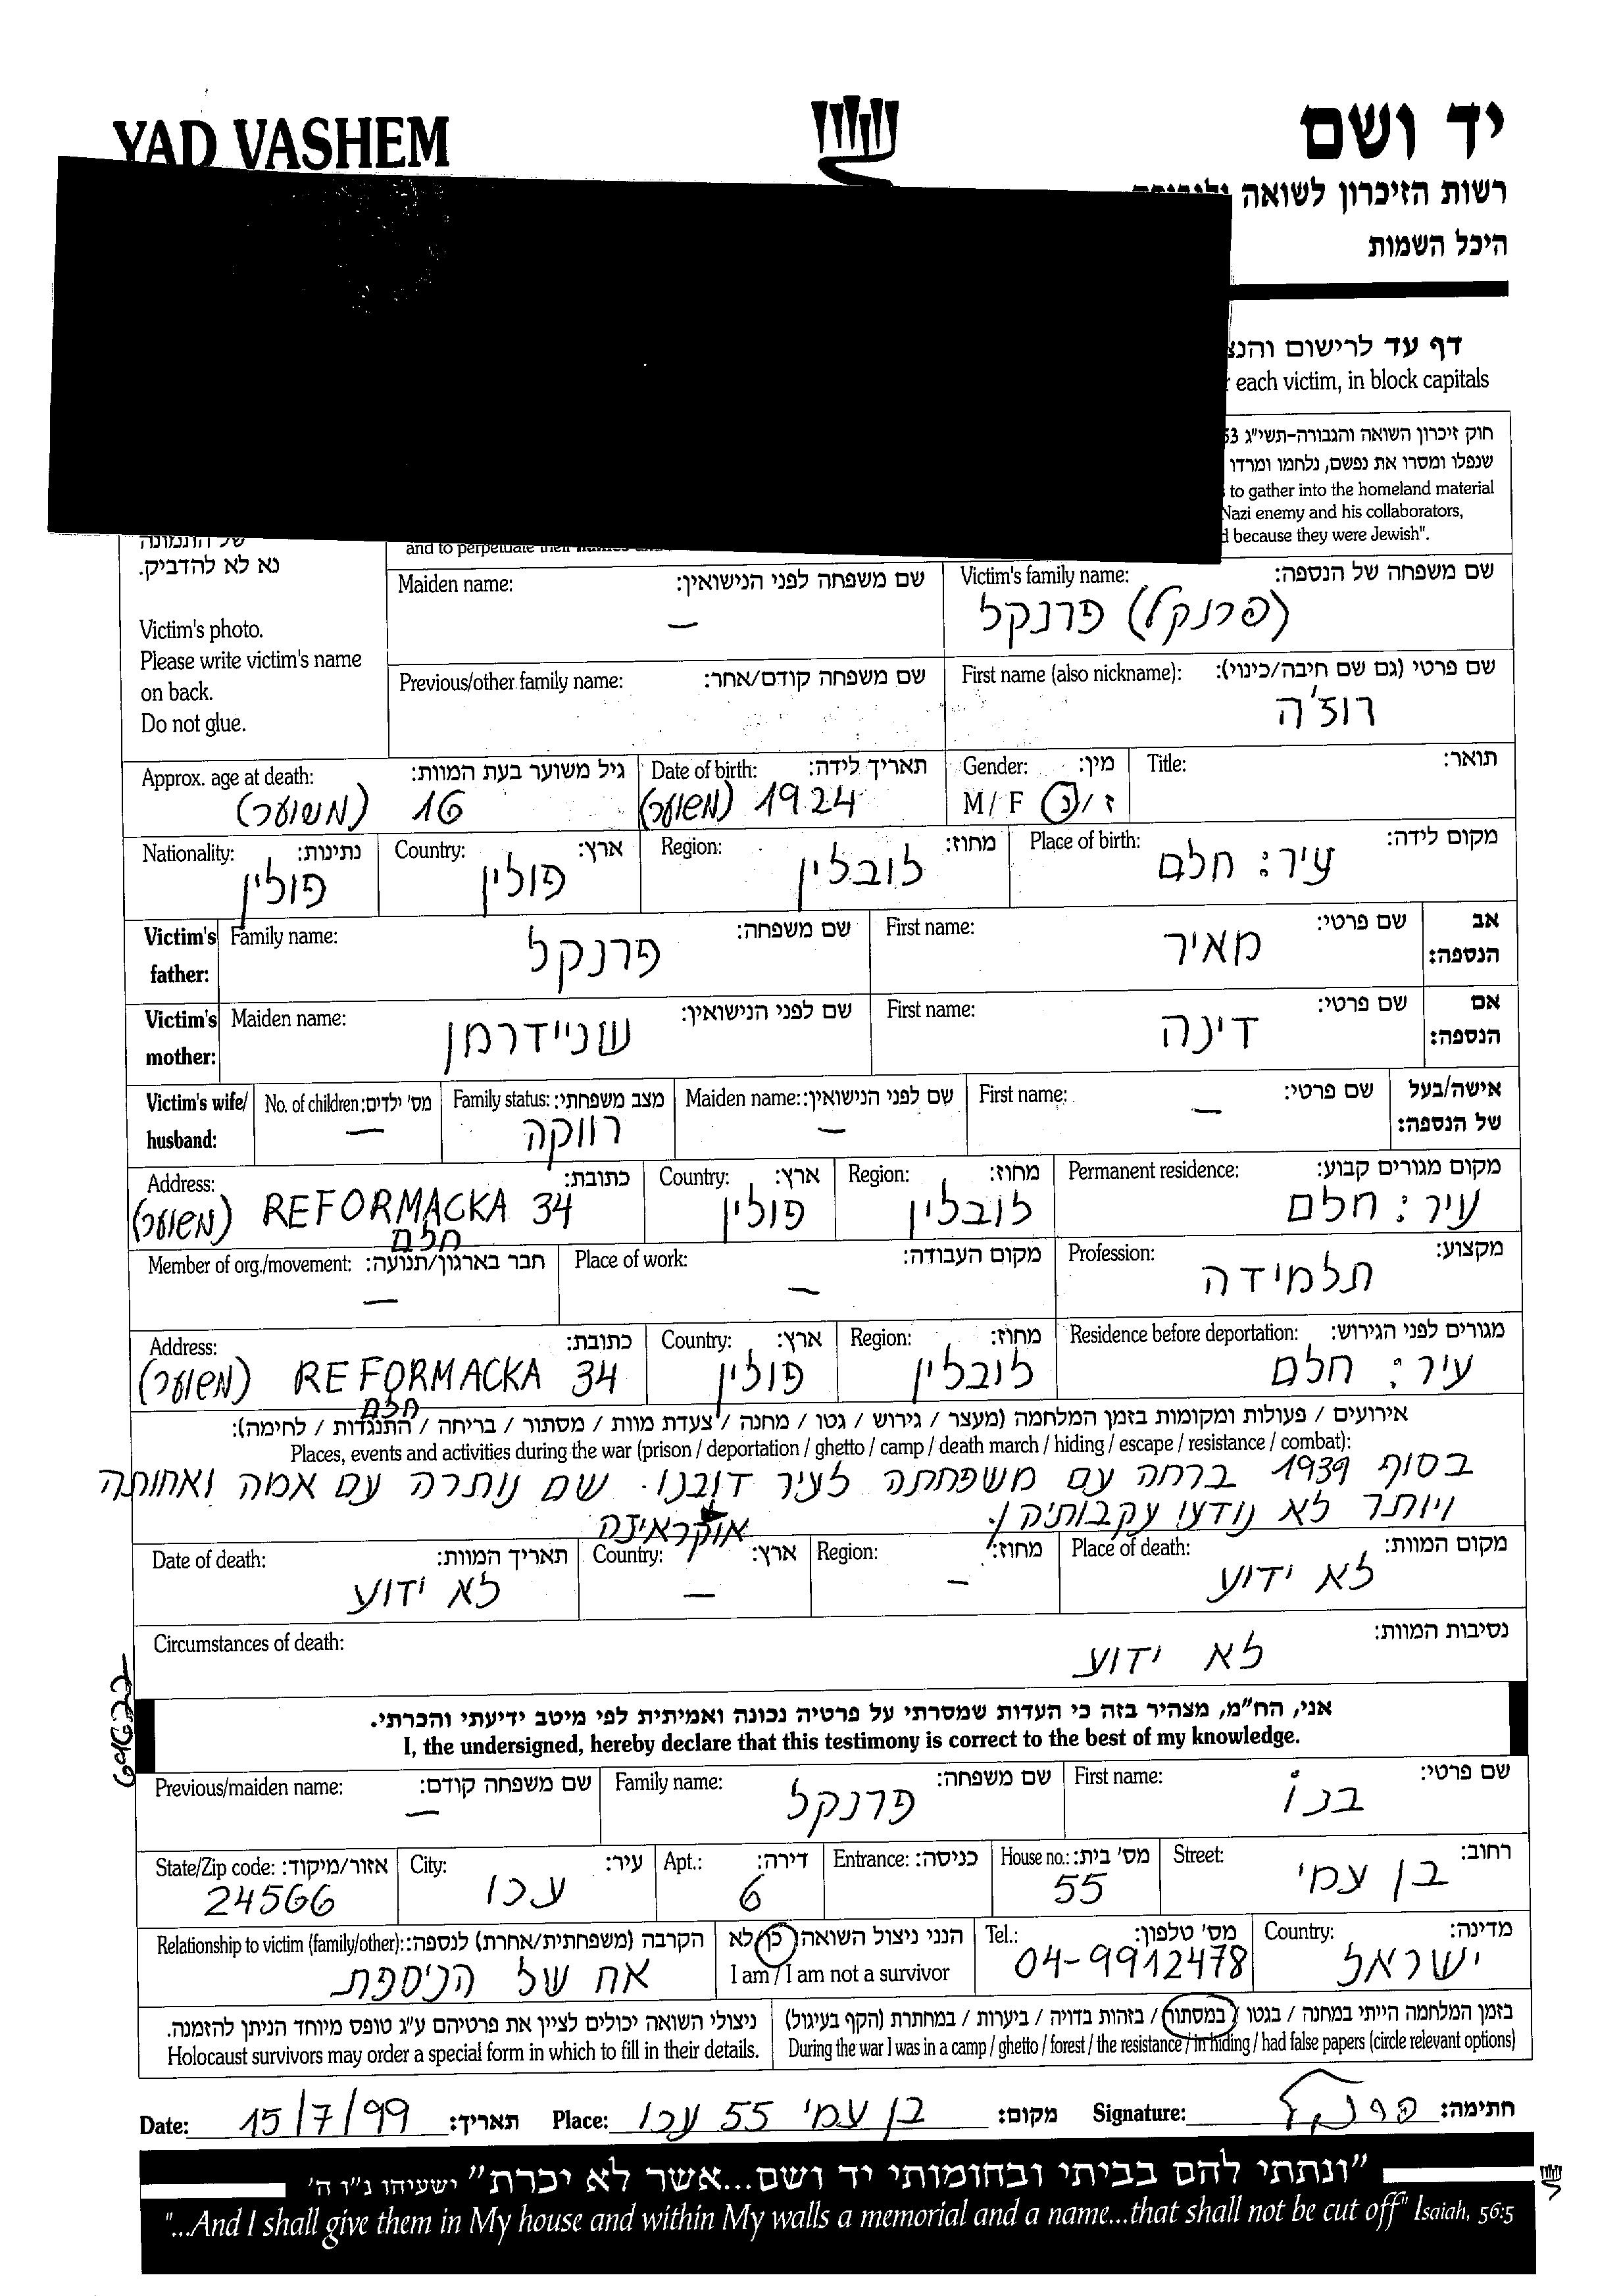 YAD VASHEM
יד ושם
רשות הזיכרון לשואה
היכל השמות
דף עד לרישום
each victim, in block capitals
חוק זיכרון השואה והגבורה-תשי״ג 53
שנפלו ומסרו את נפשם, נלחמו ומרדו
to gather into the homeland material
Nazi enemy and his collaborators,
because they were Jewish".
and to perpetuate their
של התמונה
נא לא להדביק.
Victim's photo.
Please write victim's name
on back.
Do not glue.
Victim's family name: שם משפחה של הנספה:
(פרנקל) פרנקל
Maiden name: שם משפחה לפני הנישואין:
–
First name (also nickname): שם פרטי (גם שם חיבה/כינוי):
רוז'ה
Previous/other family name: שם משפחה קודם/אחר:
Title: תואר:
Gender: מין:
M/ F ז/נ
Date of birth: תאריך לידה:
1924 (משוער)
Approx. age at death: גיל משוער בעת המוות:
16 (משוער)
Place of birth: מקום לידה:
עיר: חלם
Region: מחוז:
לובלין
Country: ארץ:
פולין
Nationality: נתינות:
פולין
Victim's father: אב הנספה:
First name: שם פרטי:
מאיר
Family name: שם משפחה:
פרנקל
Victim's mother: אם הנספה:
First name: שם פרטי:
דינה
Maiden name: שם לפני הנישואין:
שניידרמן
Victim's wife/ husband: אישה/בעל של הנספה:
First name: שם פרטי:
–
Maiden name: שם לפני הנישואין:
–
Family status: מצב משפחתי:
רווקה
No. of children: מס' ילדים:
–
Permanent residence: מקום מגורים קבוע:
עיר: חלם
Region: מחוז:
לובלין
Country: ארץ:
פולין
Address: כתובת:
REFORMACKA 34 (משוער)
חלם
Profession: מקצוע:
תלמידה
Place of work: מקום העבודה:
–
Member of org./movement: חבר בארגון/תנועה:
–
Residence before deportation: מגורים לפני הגירוש:
עיר: חלם
Region: מחוז:
לובלין
Country: ארץ:
פולין
Address: כתובת:
REFORMACKA 34 (משוער)
חלם
אירועים / פעולות ומקומות בזמן המלחמה (מעצר / גירוש / גטו / מחנה / צעדת מוות / מסתור / בריחה / התנגדות / לחימה):
Places, events and activities during the war (prison / deportation / ghetto / camp / death march / hiding / escape / resistance / combat):
בסוף 1939 ברחה עם משפחתה לעיר דובנו. שם נותרה עם אמה ואחותה
ויותר לא נודעו עקבותיהן.
אוקראינה
Place of death: מקום המוות:
לא ידוע
Region: מחוז:
–
Country: ארץ:
–
Date of death: תאריך המוות:
לא ידוע
Circumstances of death: נסיבות המוות:
לא ידוע
אני, הח״מ, מצהיר בזה כי העדות שמסרתי על פרטיה נכונה ואמיתית לפי מיטב ידיעתי והכרתי.
I, the undersigned, hereby declare that this testimony is correct to the best of my knowledge.
First name: שם פרטי:
בנו
Family name: שם משפחה:
פרנקל
Previous/maiden name: שם משפחה קודם:
–
Street: רחוב:
בן עמי
House no.: מס' בית:
55
Entrance: כניסה:
Apt.: דירה:
6
City: עיר:
עכו
State/Zip code: אזור/מיקוד:
24566
Country: מדינה:
ישראל
Tel.: מס' טלפון:
04-9912478
הנני ניצול השואה כן/לא
I am / I am not a survivor
Relationship to victim (family/other): הקרבה (משפחתית/אחרת) לנספה:
אח של הניספת
בזמן המלחמה הייתי במחנה / בגטו / במסתור / בזהות בדויה / ביערות / במחתרת (הקף בעיגול)
During the war I was in a camp / ghetto / forest / the resistance / in hiding / had false papers (circle relevant options)
ניצולי השואה יכולים לציין את פרטיהם ע״ג טופס מיוחד הניתן להזמנה.
Holocaust survivors may order a special form in which to fill in their details.
Date: 15/7/99 תאריך: Place: בן עמי 55 עכו מקום: Signature: פרנקל חתימה:
״ונתתי להם בביתי ובחומותי יד ושם...אשר לא יכרת״ ישעיהו נ״ו ה'
"...And I shall give them in My house and within My walls a memorial and a name...that shall not be cut off" Isaiah, 56:5